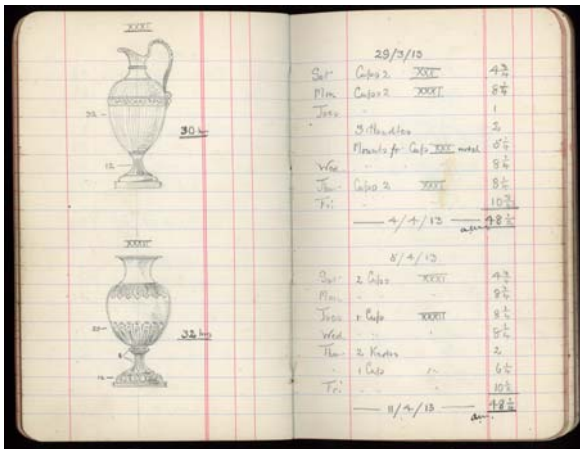 XXXI
32
30 hrs
12
XXXII
20
32 hrs
8
12
29/3/13
Sat Cups 2 XXXI 4 3/4
Mon Cups 2 XXXI 8 1/4
Tues " 1
3 Handles 2
Mounts for Cup XXXI metal 5 1/4
Wed " " 8 1/4
Thu Cups 2 XXXI 8 1/4
Fri " 10 3/4
4/4/13 48 1/2
5/4/13
Sat 2 Cups XXXII 4 3/4
Mon " " 8 1/4
Tues 2 Cups XXXII 8 1/4
Wed " " 8 1/4
Thu 2 2
1 Cup " 6 1/4
Fri " " 10 1/2
11/4/13 48 1/2